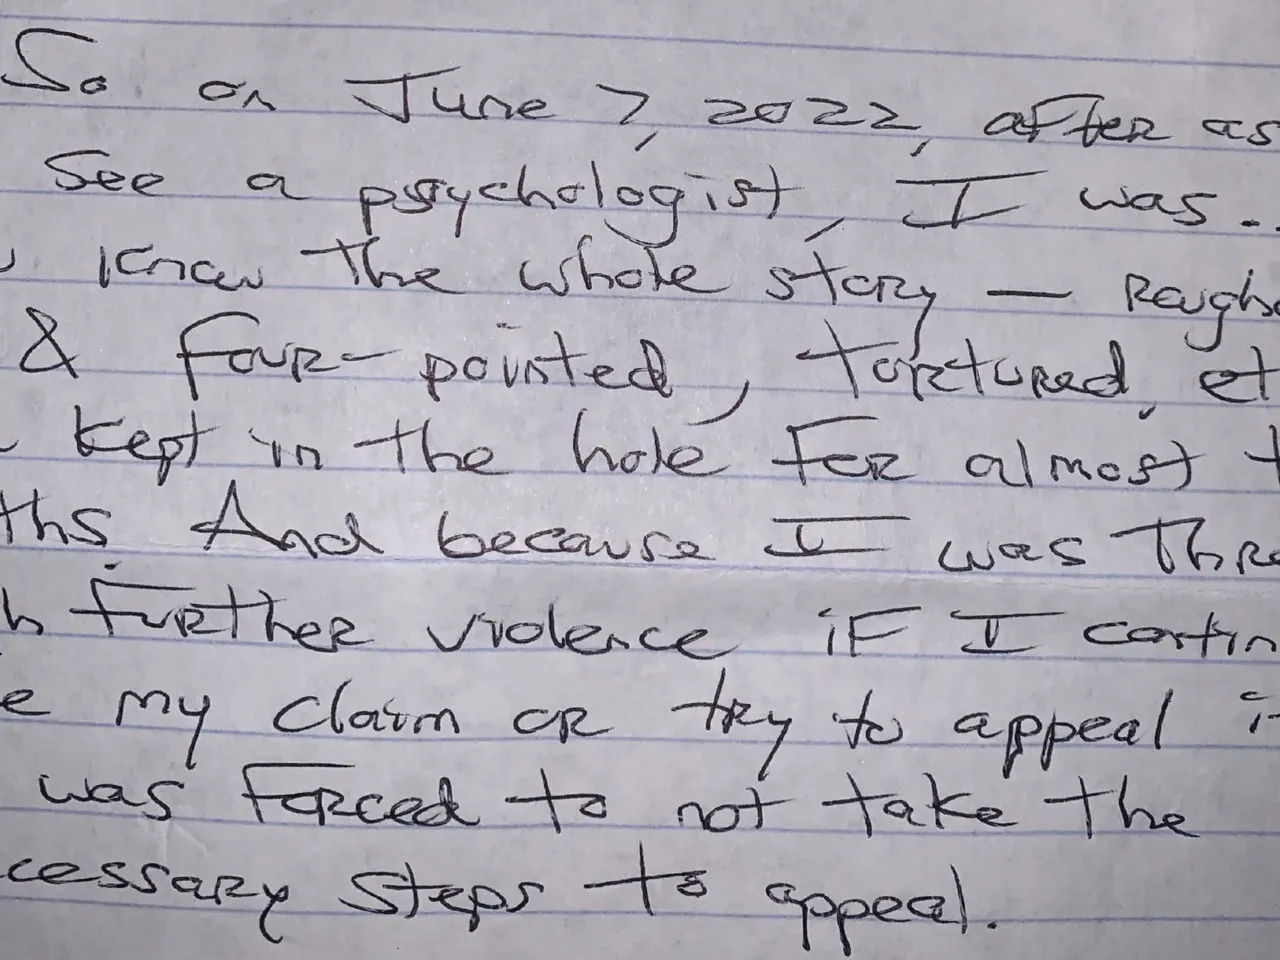 So on June 7, 2022, after as
see a psychologist, I was..
know the whole story — rough
& four-pointed, tortured, et
kept in the hole for almost t
ths And because I was thre
h further violence if I contin
e my claim or try to appeal i
was forced to not take the
cessary steps to appeal.